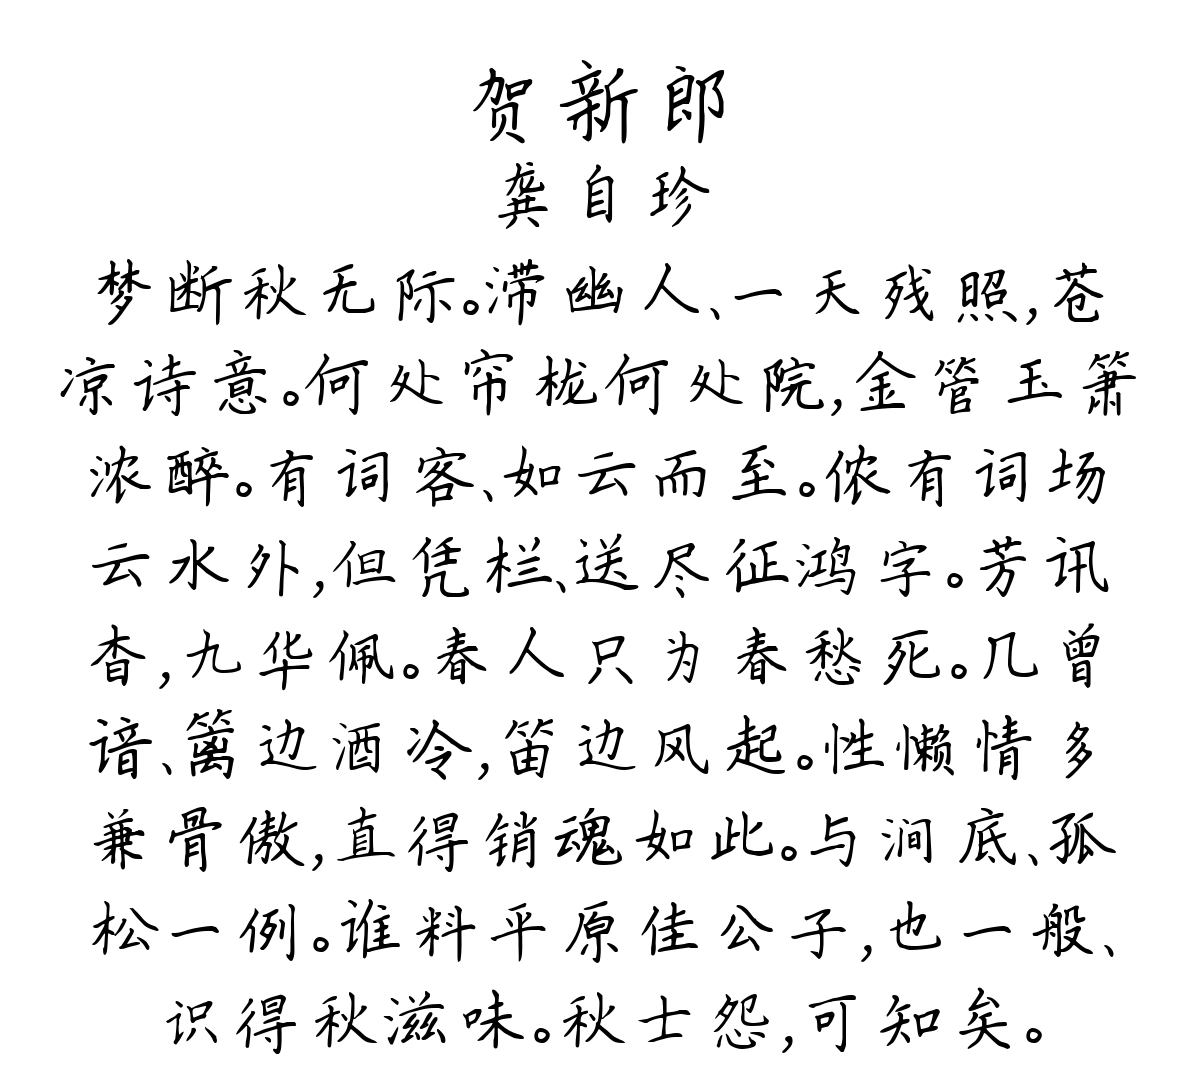 贺新郎
龚自珍
梦断秋无际。滞幽人、一天残照,苍
凉诗意。何处帘栊何处院,金管玉箫
浓醉。有词客、如云而至。侬有词场
云水外,但凭栏、送尽征鸿字。芳讯
杳,九华佩。春人只为春愁死。几曾
谙、篱边酒冷,笛边风起。性懒情多
兼骨傲,直得销魂如此。与涧底、孤
松一例。谁料平原佳公子,也一般、
识得秋滋味。秋士怨,可知矣。